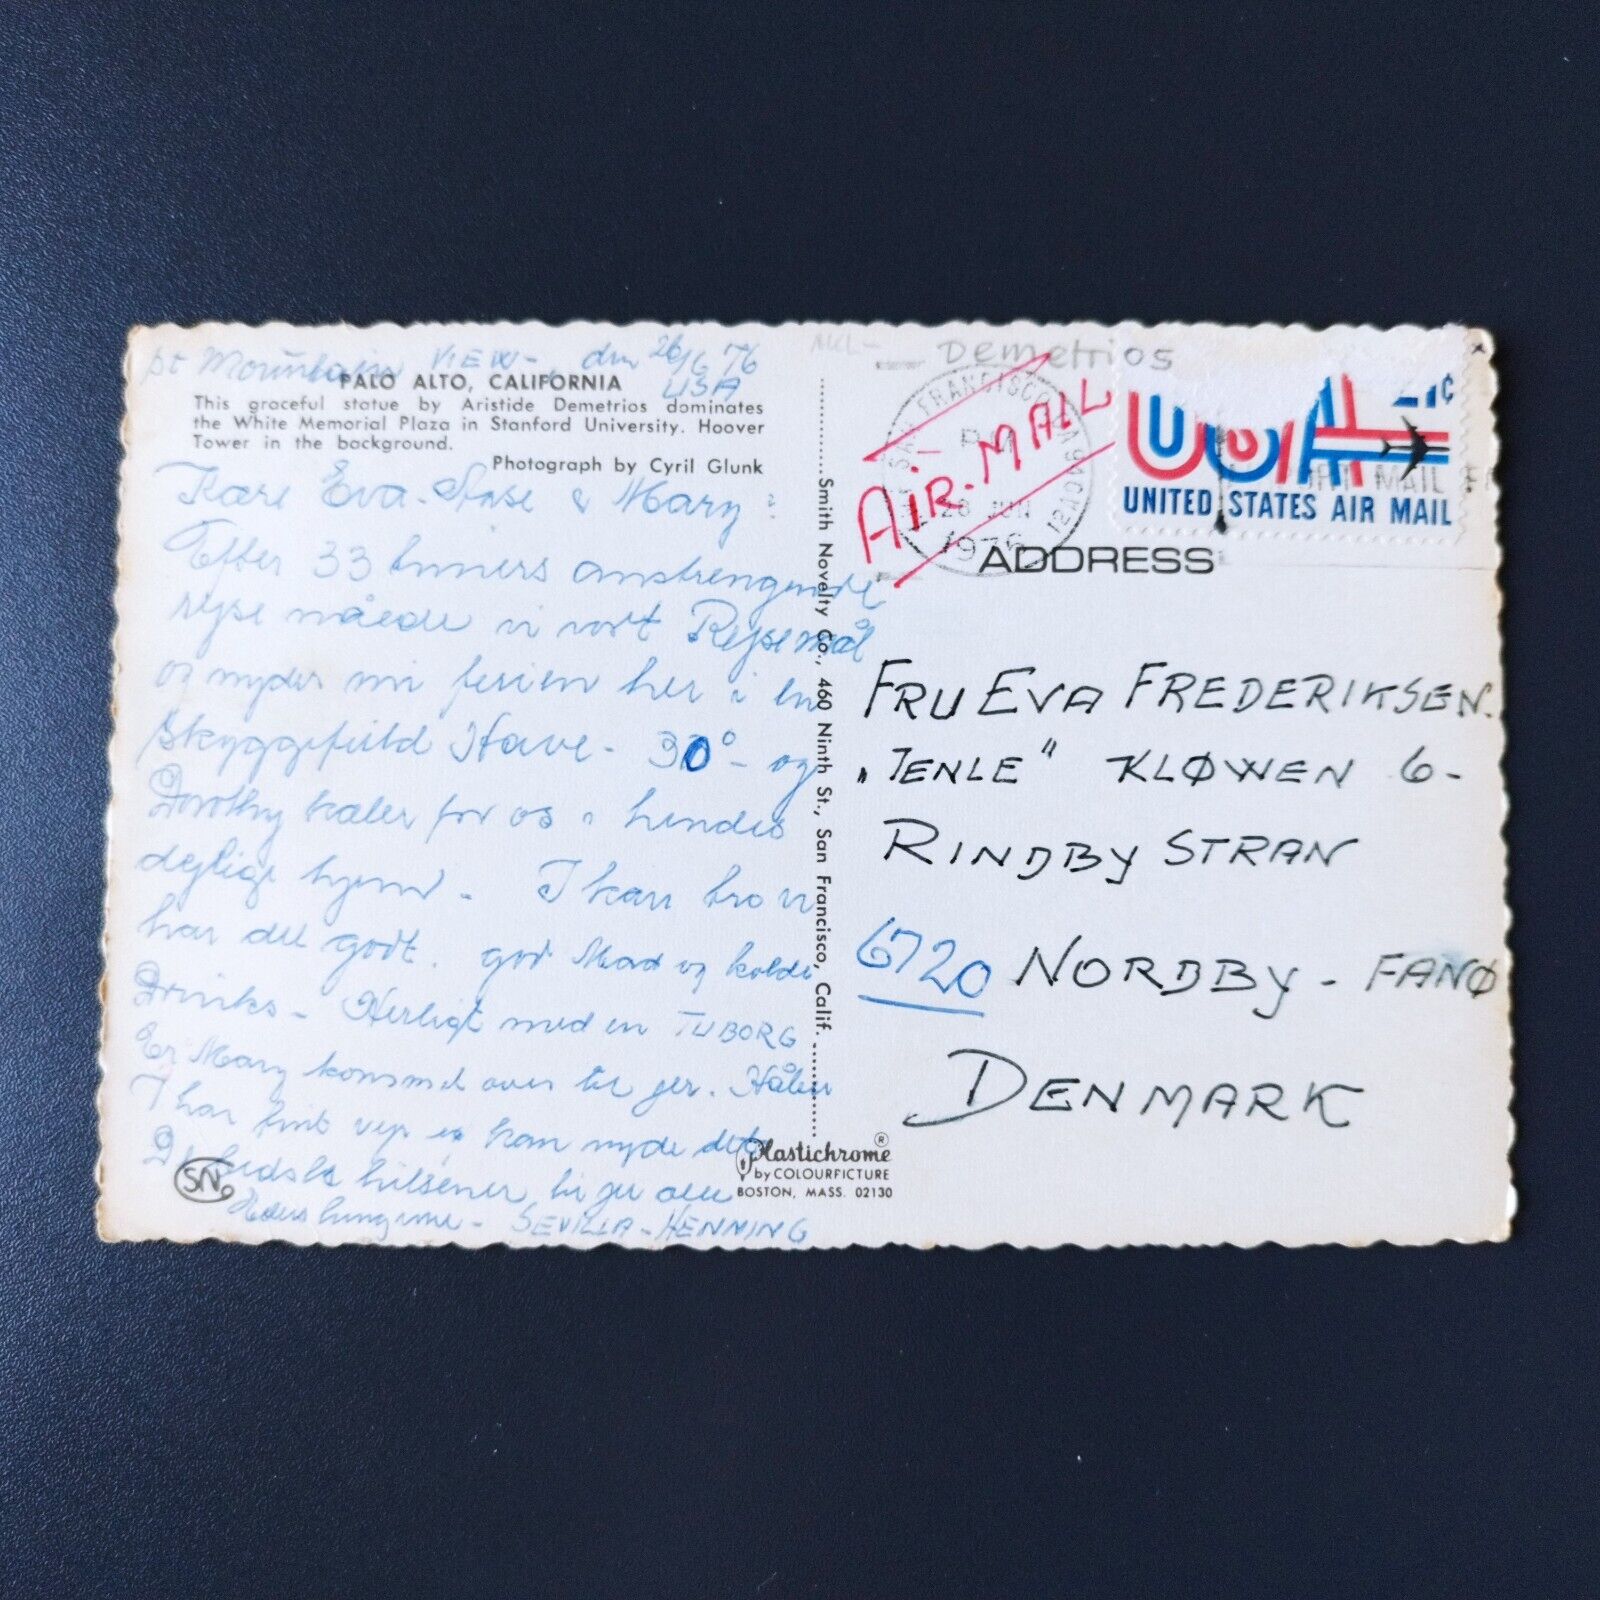 pt Mountain VIEW -, den 26/6 76
USA
PALO ALTO, CALIFORNIA
This graceful statue by Aristide Demetrios dominates
the White Memorial Plaza in Stanford University. Hoover
Tower in the background.
Photograph by Cyril Glunk
Kære Eva. & Mary :
Efter 33 timers anstrengende
rejse nåede vi vort Rejsemål
og nyder nu ferien her i en
skyggefuld Have - 30° - og
Dorothy for os i hendes
dejlige hjem - I kan tro vi
har det godt. god Mad og kolde
Drinks - Herligt med en TUBORG
Er Mary kommet over til jer. Håber
I har fint vejr og kan nyde det
De bedste hilsener til jer alle
SEVILLA - HENNING
SN
Smith Novelty Co., 460 Ninth St., San Francisco, Calif.
Plastichrome ®
by COLOURPICTURE
BOSTON, MASS. 02130
Demetrios
SAN FRANCISCO CA 940
PM
28 JUN
1976
AIR-MAIL
USA 21¢
UNITED STATES AIR MAIL
MAIL
ADDRESS
FRU EVA FREDERIKSEN.
„TENLE" KLØWEN 6-
RINDBY STRAN
6720 NORDBY - FANØ
DENMARK